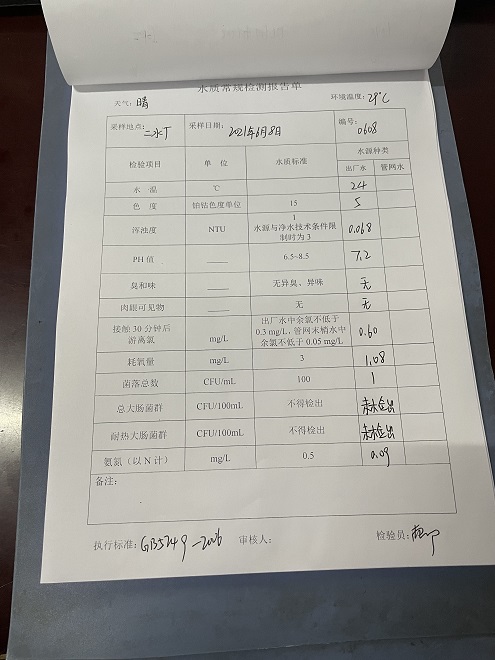 水质常规检测报告单
天气：晴 环境温度：29℃
采样地点：二水厂 采样日期：2021年6月8日 编号：0608
检验项目 单 位 水质标准 水源种类
出厂水 管网水
水 温 ℃ 24
色 度 铂钴色度单位 15 5
浑浊度 NTU 1 0.068
水源与净水技术条件限
制时为 3
PH 值 —— 6.5~8.5 7.2
臭和味 —— 无异臭、异味 无
肉眼可见物 —— 无 无
接触 30 分钟后
游离氯 mg/L 出厂水中余氯不低于
0.3 mg/L，管网末梢水中
余氯不低于 0.05 mg/L 0.60
耗氧量 mg/L 3 1.08
菌落总数 CFU/mL 100 1
总大肠菌群 CFU/100mL 不得检出 未检出
耐热大肠菌群 CFU/100mL 不得检出 未检出
氨氮（以 N 计） mg/L 0.5 0.09
备注：
执行标准：GB5749-2006 审核人： 检验员：